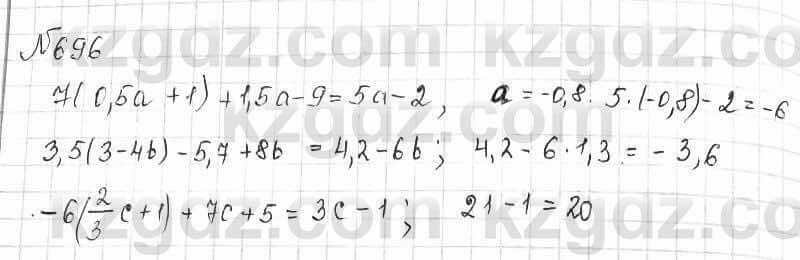 №696
7(0,5a+1)+1,5a-9=5a-2, a=-0,8. 5·(-0,8)-2=-6
3,5(3-4b)-5,7+8b =4,2-6b; 4,2-6·1,3=-3,6
-6(2/3 c+1)+7c+5=3c-1; 21-1=20
kzgdz.com kzgdz.com
kzgdz.com
kzgdz.com kzgdz.com